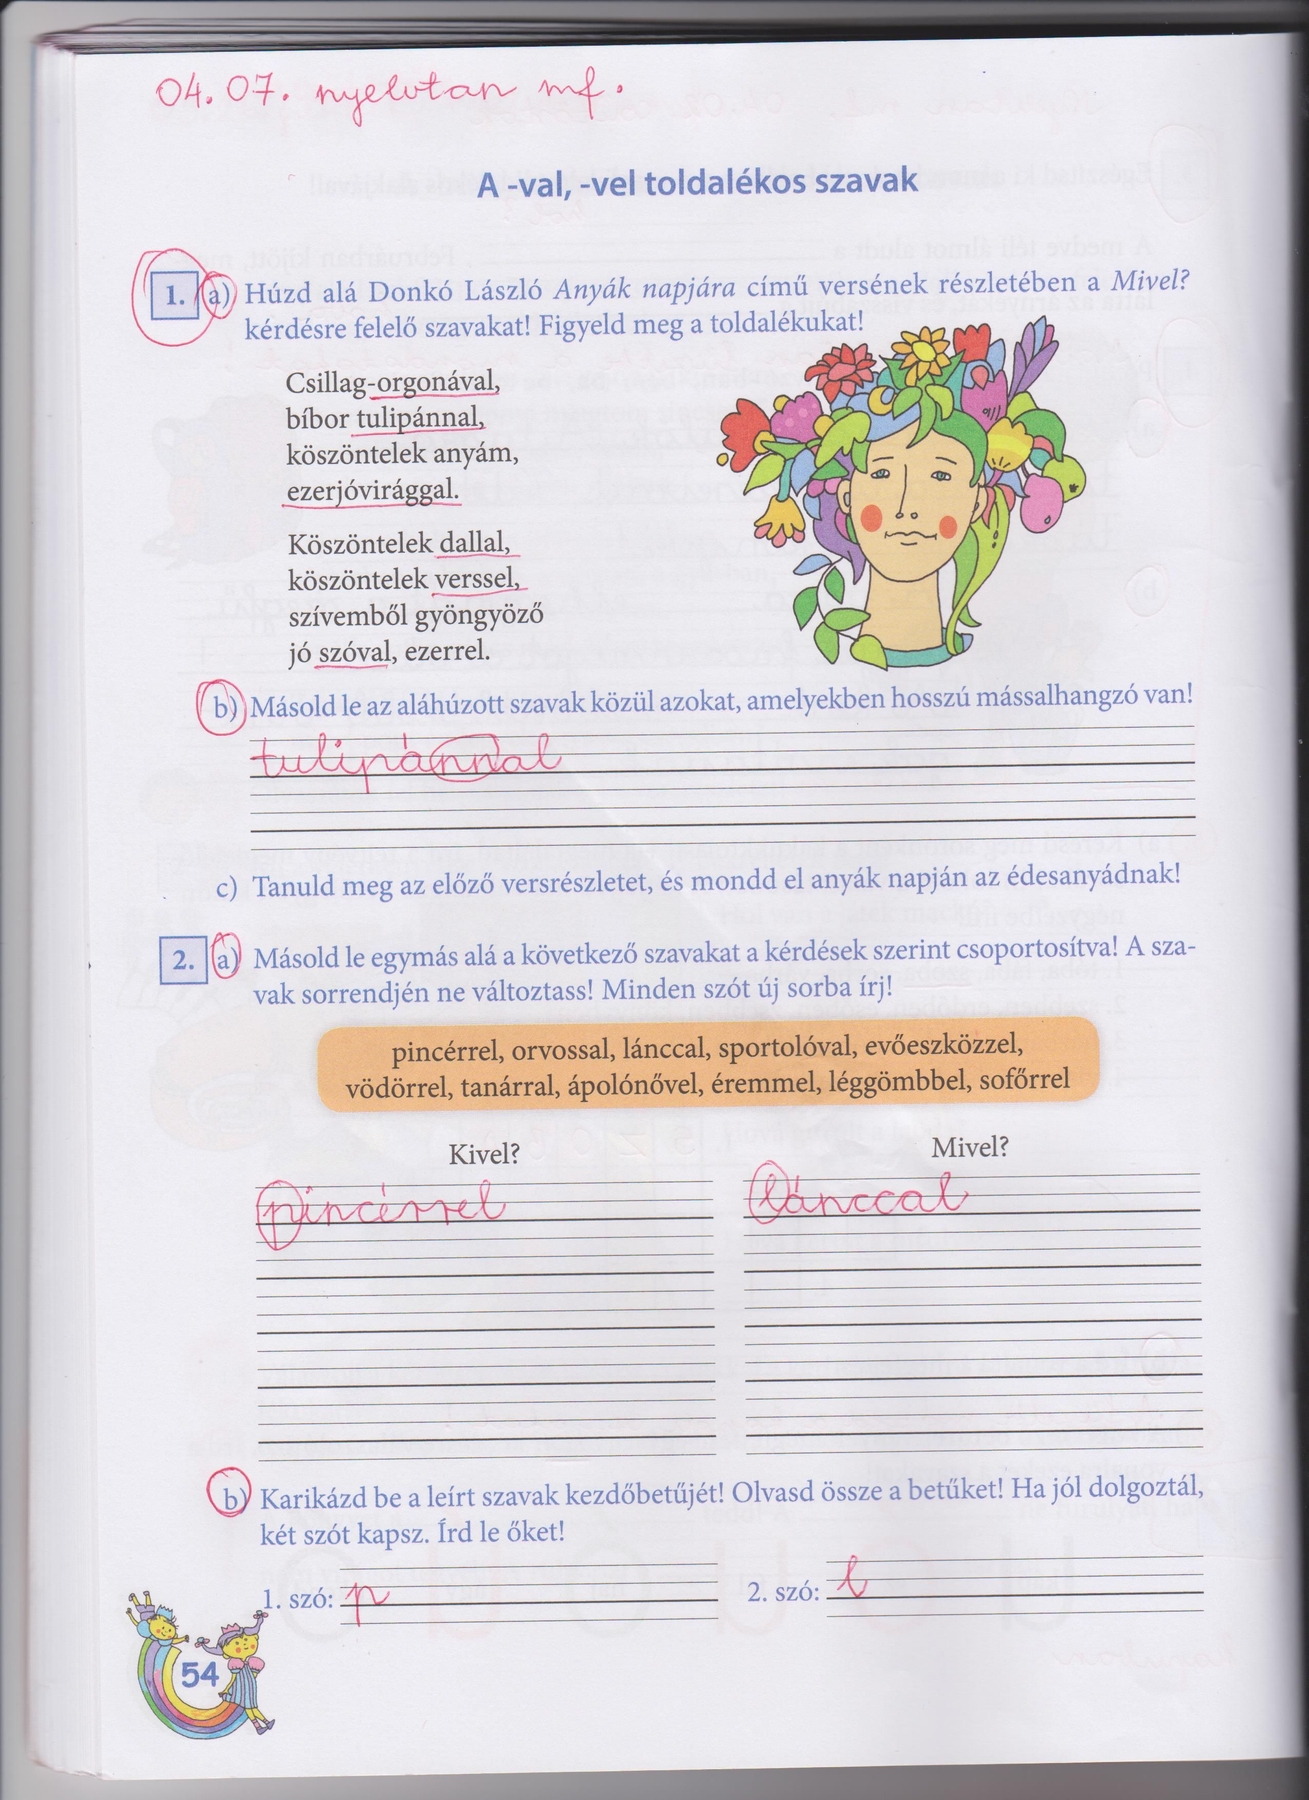 04. 07. nyelvtan mf.
A -val, -vel toldalékos szavak
1. a) Húzd alá Donkó László Anyák napjára című versének részletében a Mivel?
kérdésre felelő szavakat! Figyeld meg a toldalékukat!
Csillag-orgonával,
bíbor tulipánnal,
köszöntelek anyám,
ezerjóvirággal.
Köszöntelek dallal,
köszöntelek verssel,
szívemből gyöngyöző
jó szóval, ezerrel.
b) Másold le az aláhúzott szavak közül azokat, amelyekben hosszú mássalhangzó van!
tulipánnal
c) Tanuld meg az előző versrészletet, és mondd el anyák napján az édesanyádnak!
2. a) Másold le egymás alá a következő szavakat a kérdések szerint csoportosítva! A sza-
vak sorrendjén ne változtass! Minden szót új sorba írj!
pincérrel, orvossal, lánccal, sportolóval, evőeszközzel,
vödörrel, tanárral, ápolónővel, éremmel, léggömbbel, sofőrrel
Kivel? Mivel?
pincérrel lánccal
b) Karikázd be a leírt szavak kezdőbetűjét! Olvasd össze a betűket! Ha jól dolgoztál,
két szót kapsz. Írd le őket!
1. szó: p 2. szó: l
54